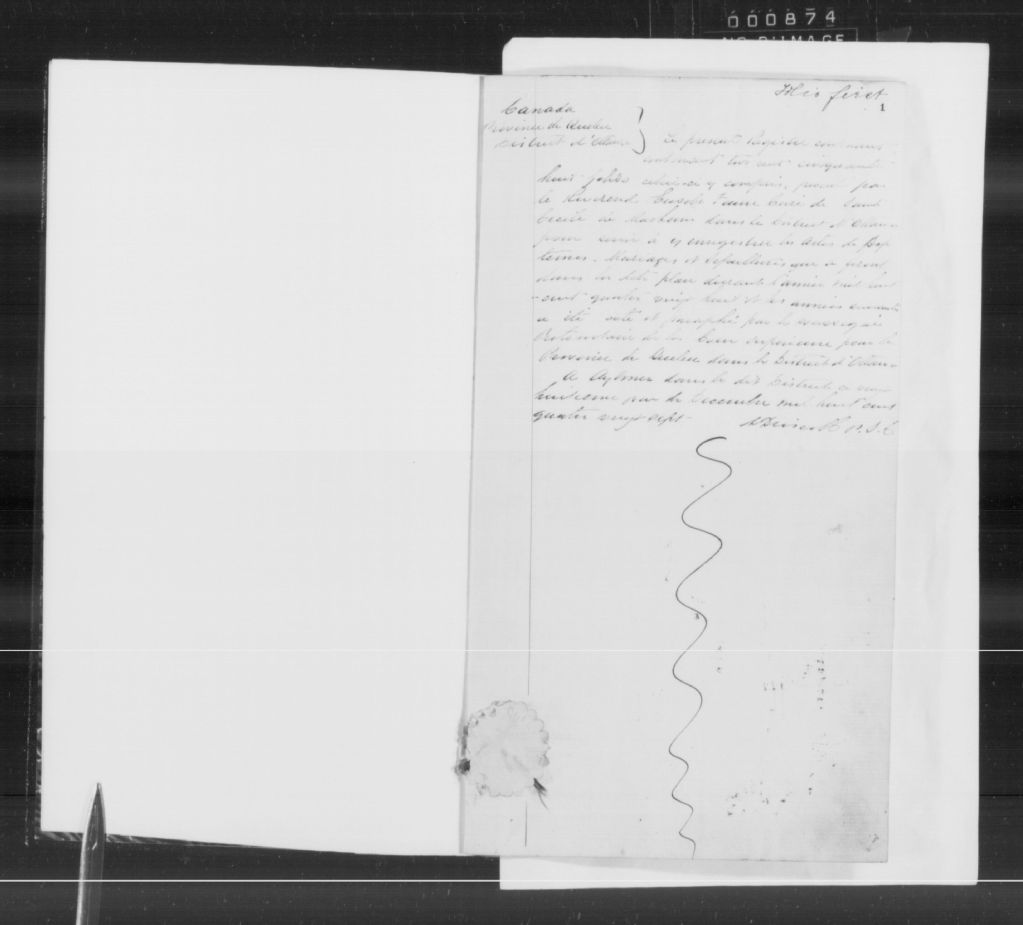 000874
NO DUIMAGE
Folio first
1
Canada
Province de Quebec
District d'Ottawa
Le present Registre contenant
contenant trois cent cinquante
huit folios celui ci y compris, pour
le Reverend Eusebe Faure Curé de Sainte
Cecile de Masham dans le District d'Ottawa
pour servir à y enregistrer les Actes de Bap
temes, Mariages et Sepultures qui se feront
dans la dite place durant l'année mil huit
cent quatre vingt huit et les années suivantes
a été coté et paraphé par le soussigné
Protonotaire de la Cour Superieure pour la
Province de Quebec dans le District d'Ottawa
A Aylmer dans le dit District ce vingt
huitieme jour de Decembre mil huit cent
quatre vingt sept
P. S. C